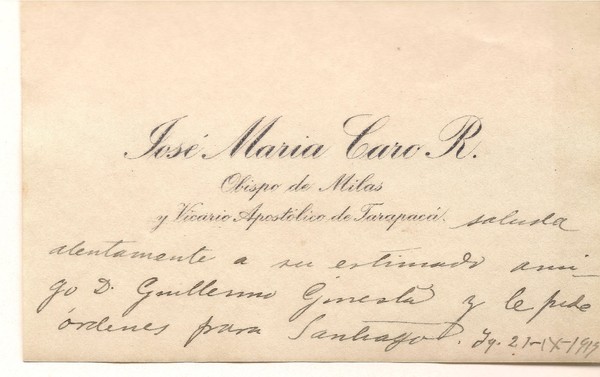 José Maria Caro R.
Obispo de Milas
y Vicario Apostólico de Tarapacá. saluda
atentamente a su estimado ami-
go D. Guillermo Ginesta y le pide
órdenes para Santiago. Iq. 21-IX-191